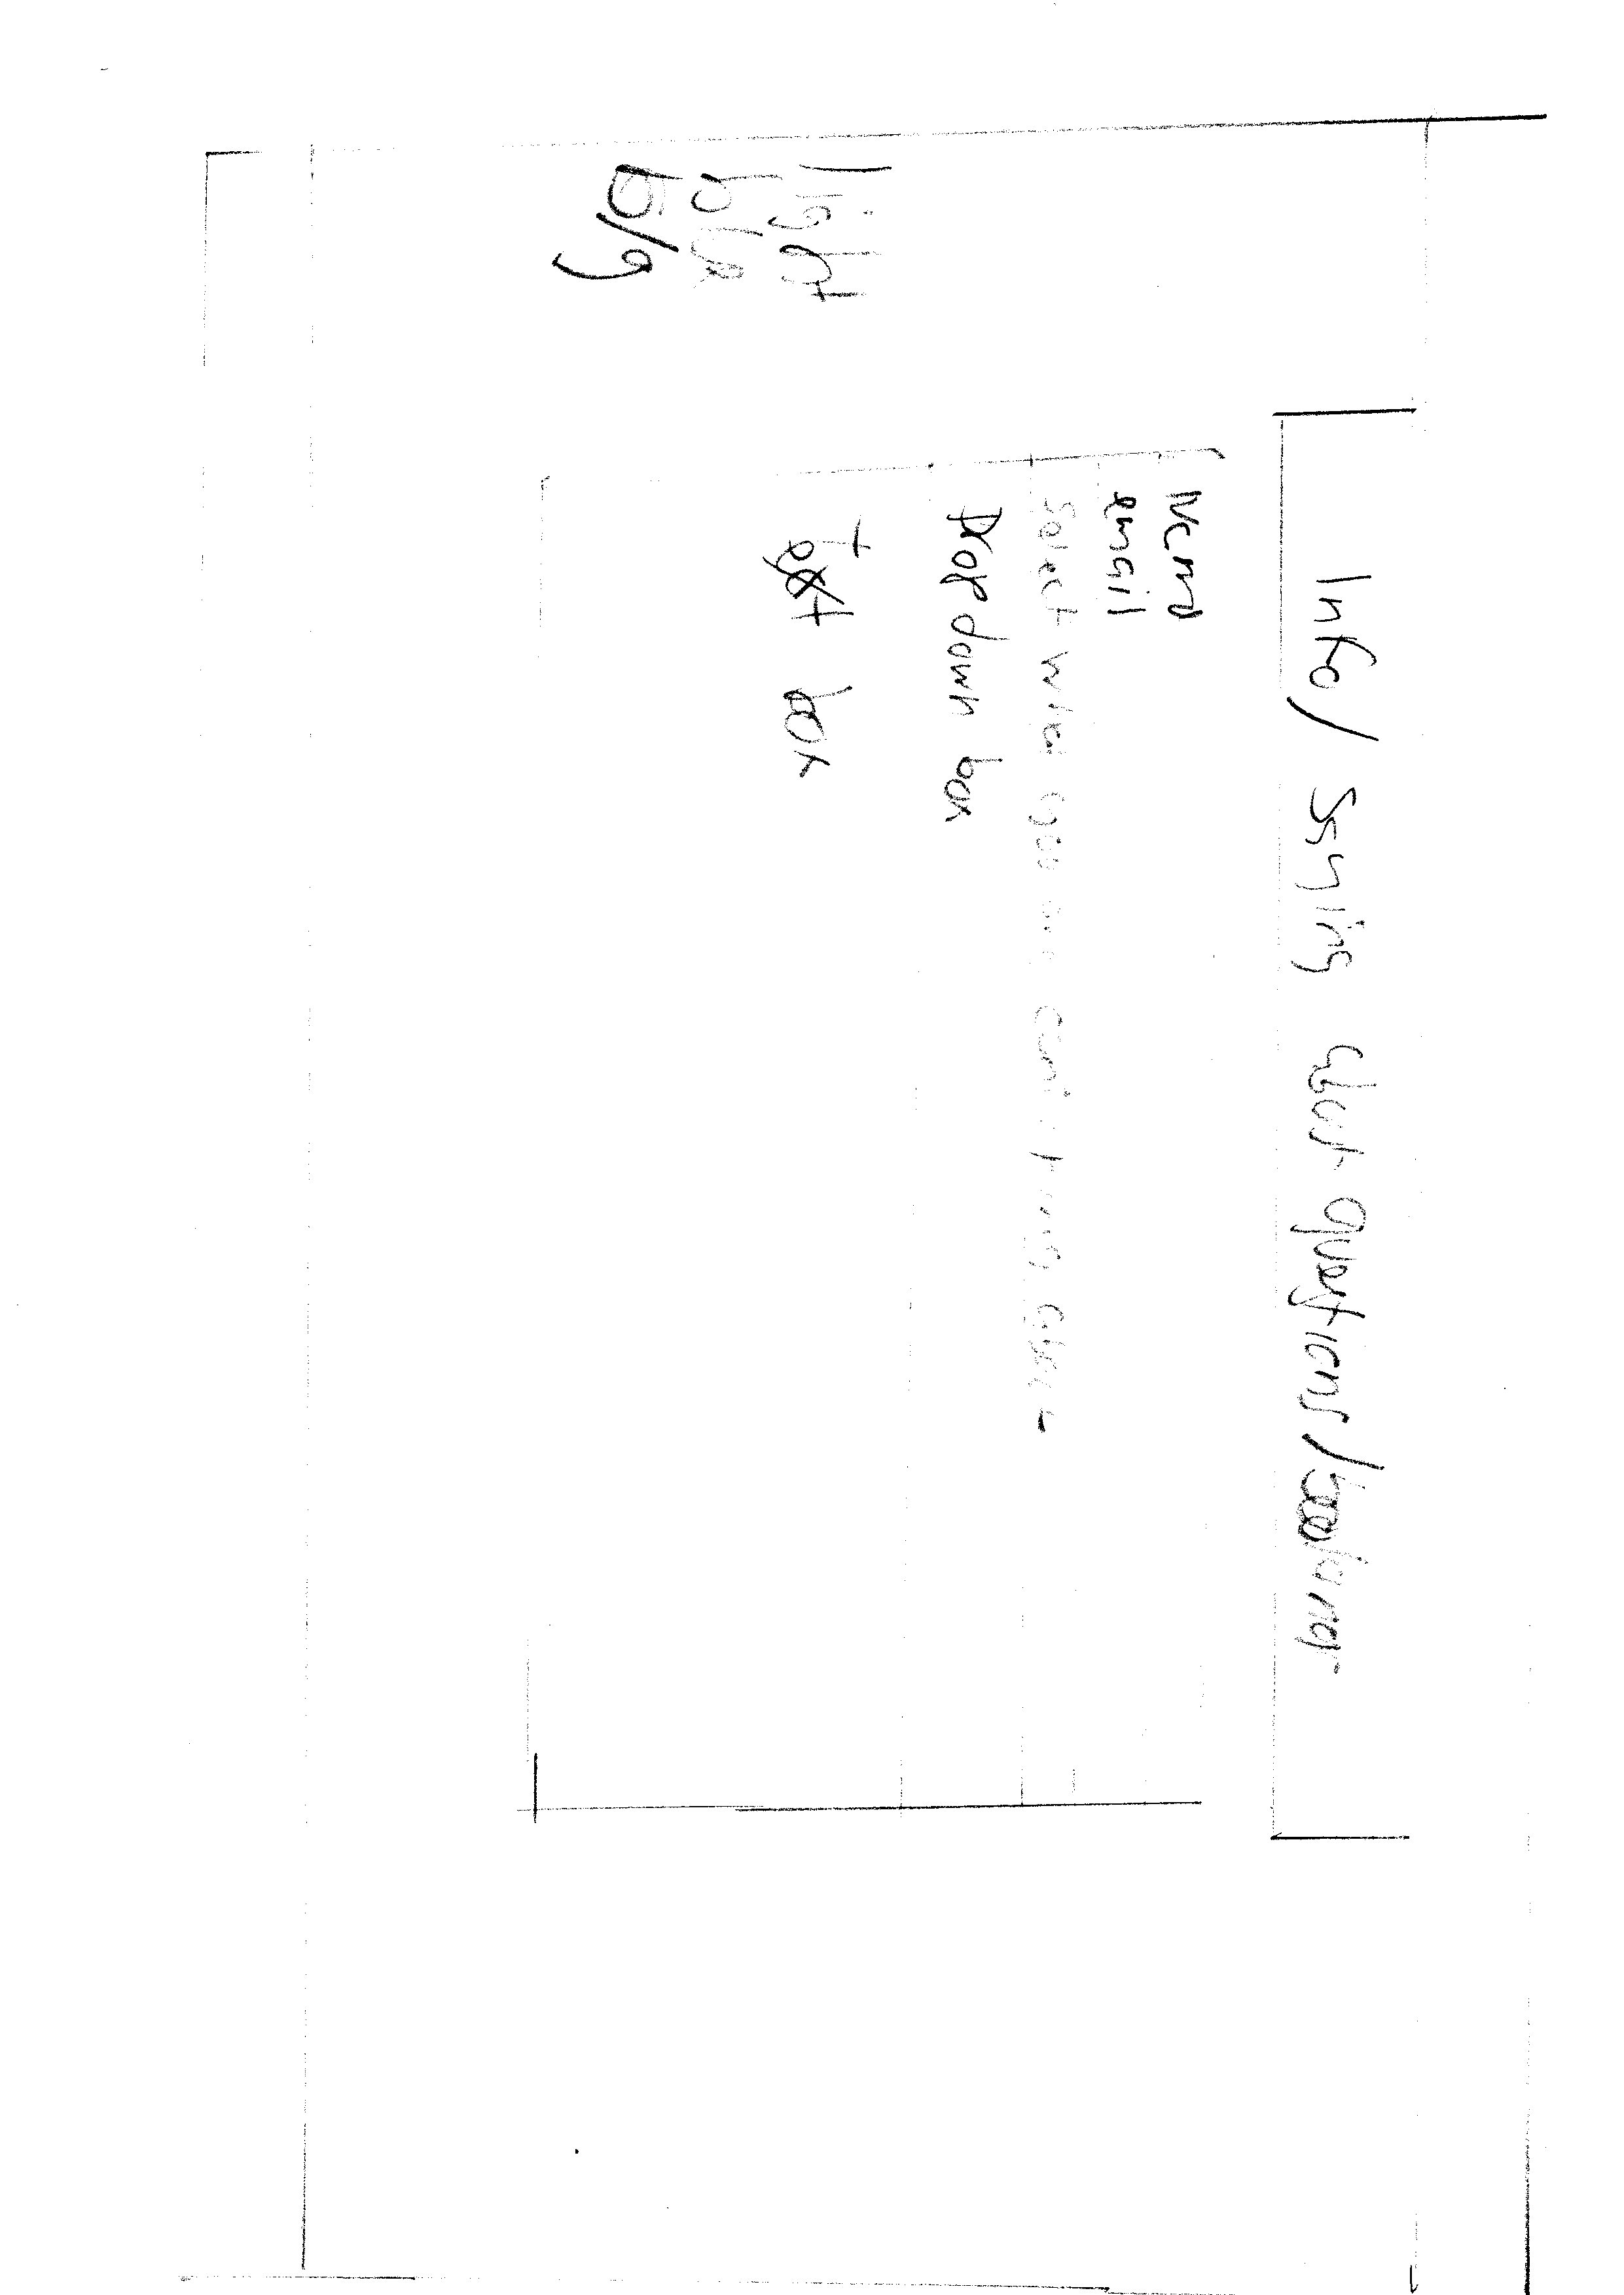 Info/ Saying about Questions/
Name
email
Select what you are contacting about
Dropdown box
Text box
light
blue
b/g